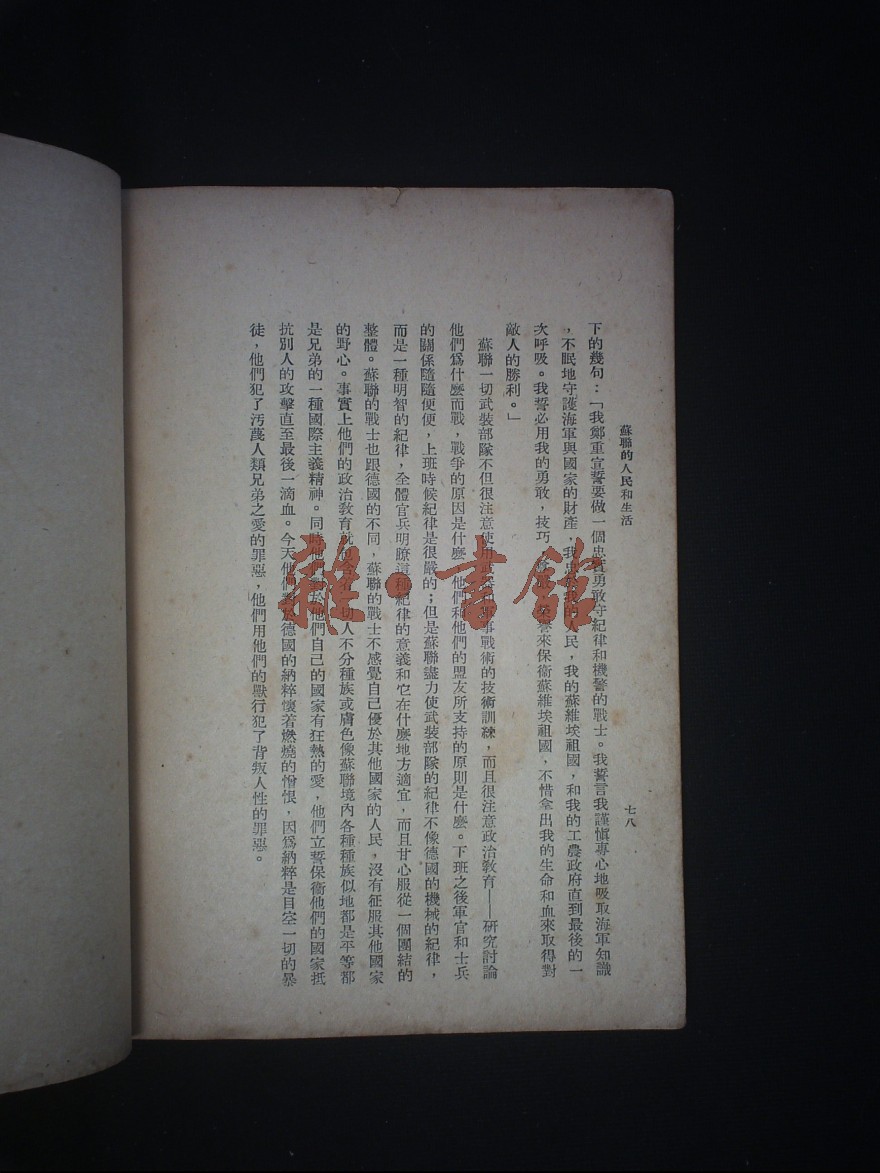 蘇聯的人民和生活
七八
下的幾句：「我鄭重宣誓要做一個忠實勇敢守紀律和機警的戰士。我誓言我謹慎專心地吸取海軍知識
，不眠地守護海軍與國家的財產，我忠於我的人民，我的蘇維埃祖國，和我的工農政府直到最後的一
次呼吸。我誓必用我的勇敢，技巧，來保衞蘇維埃祖國，不惜拿出我的生命和血來取得對
敵人的勝利。」
蘇聯一切武裝部隊不但很注意使用武器和軍事戰術的技術訓練，而且很注意政治敎育——研究討論
他們爲什麼而戰，戰爭的原因是什麼，他們和他們的盟友所支持的原則是什麼。下班之後軍官和士兵
的關係隨隨便便，上班時候紀律是很嚴的；但是蘇聯盡力使武裝部隊的紀律不像德國的機械的紀律，
而是一種明智的紀律，全體官兵明瞭這種紀律的意義和它在什麼地方適宜，而且甘心服從一個團結的
整體。蘇聯的戰士也跟德國的不同，蘇聯的戰士不感覺自己優於其他國家的人民，沒有征服其他國家
的野心。事實上他們的政治敎育一切人不分種族或膚色像蘇聯境內各種種族似地都是平等都
是兄弟的一種國際主義精神。同時他們對於他們自己的國家有狂熱的愛，他們立誓保衞他們的國家抵
抗別人的攻擊直至最後一滴血。今天他們對於德國的納粹懷着燃燒的憎恨，因爲納粹是目空一切的暴
徒，他們犯了汚蔑人類兄弟之愛的罪惡，他們用他們的獸行犯了背叛人性的罪惡。
雜·書館